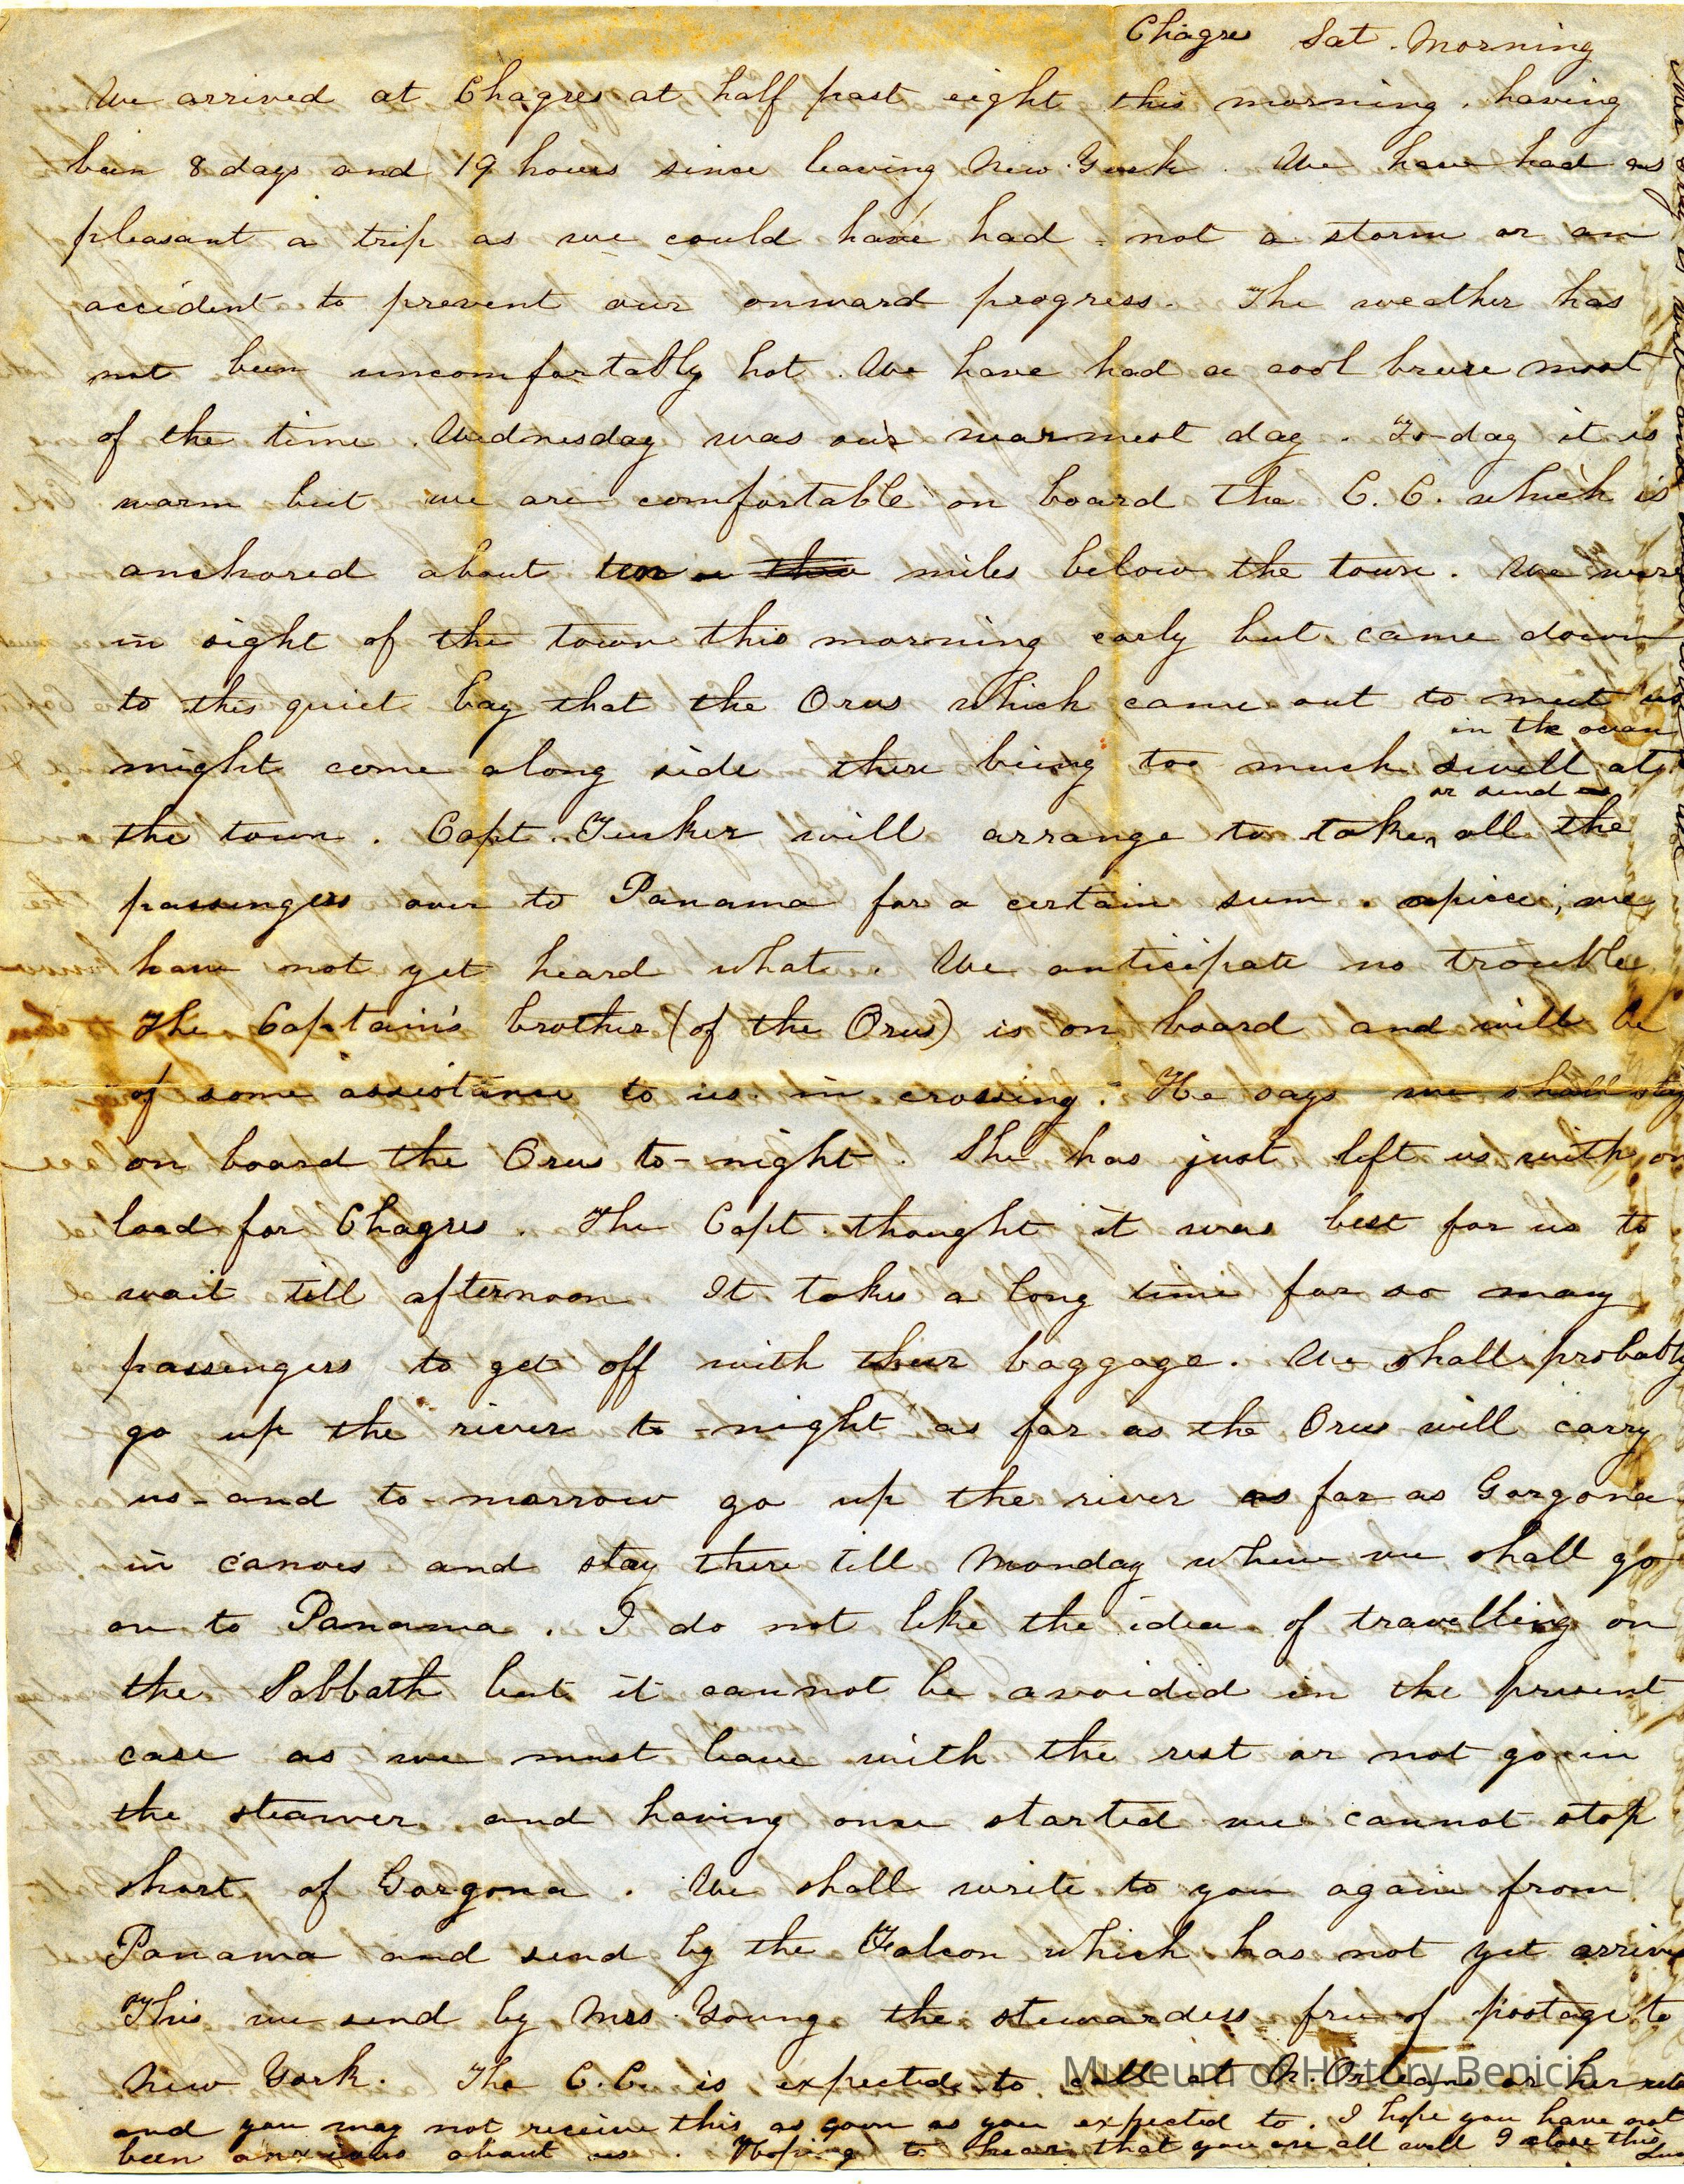 Chagres Sat. Morning
We arrived at Chagres at half past eight this morning, having
been 8 days and 19 hours since leaving New York. We have had as
pleasant a trip as we could have had - not a storm or an
accident to prevent our onward progress. The weather has
not been uncomfortably hot. We have had a cool breeze most
of the time. Wednesday was our warmest day. To-day it is
warm but we are comfortable on board the C. C. which is
anchored about two miles below the town. We were
in sight of the town this morning early but came down
to this quiet bay that the Orus which came out to meet us
in the ocean
might come along side there being too much swell at
or send
the town. Capt. Tucker will arrange to take, all the
passengers over to Panama for a certain sum apiece; we
have not yet heard what. We anticipate no trouble
The Captain's brother (of the Orus) is on board and will be
of some assistance to us in crossing. He says we shall stay
on board the Orus to-night. She has just left us with
load for Chagres. The Capt. thought it was best for us to
wait till afternoon. It takes a long time for so many
passengers to get off with their baggage. We shall probably
go up the river to-night as far as the Orus will carry
us - and to-morrow go up the river as far as Gorgona
in canoes and stay there till Monday when we shall go
on to Panama. I do not like the idea of travelling on
the Sabbath but it cannot be avoided in the present
case as we must leave with the rest or not go in
the steamer and having once started we cannot stop
short of Gorgona. We shall write to you again from
Panama and send by the Falcon which has not yet
This we send by Mrs. Young the stewardess free of postage to
New York. The C.C. is expected to call at N. Orleans on her
and you may not receive this as soon as you expected to. I hope you have not
been anxious about us. Hoping to hear that you are all well I close this
Museum of History Benicia